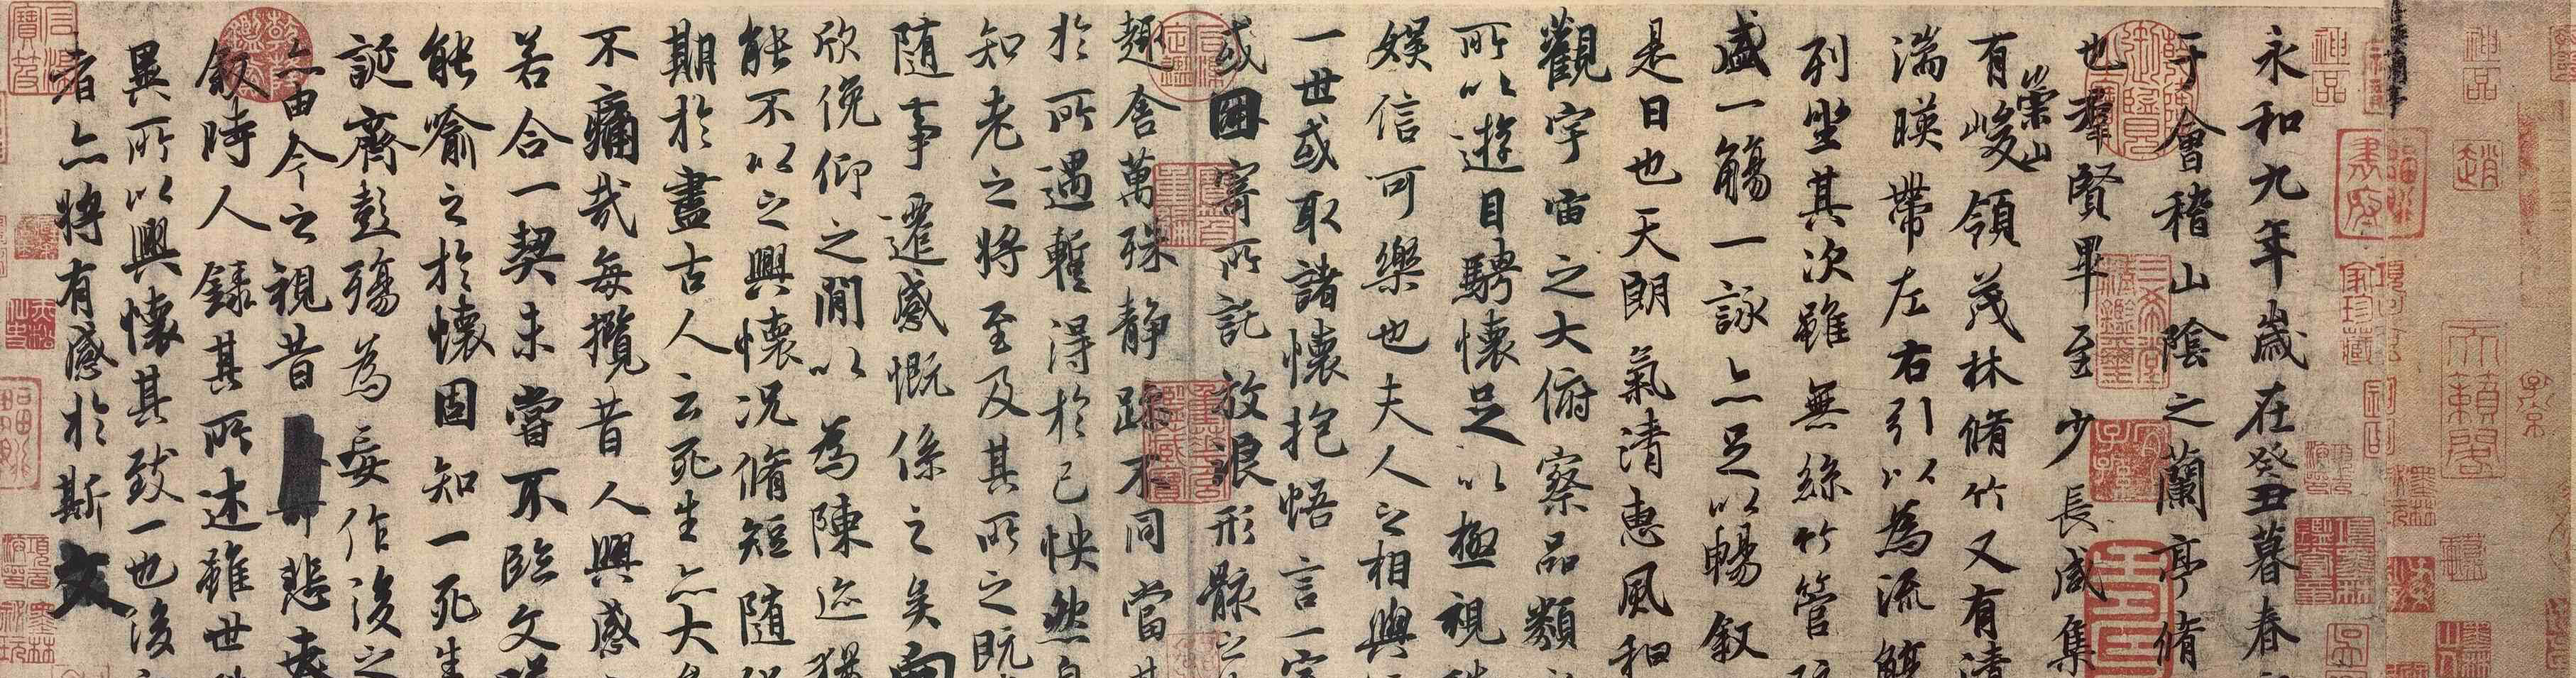 永和九年歲在癸丑暮春
于會稽山陰之蘭亭脩
也羣賢畢至少長咸集
有崇山峻領茂林脩竹又有清
湍暎帶左右引以為流觴
列坐其次雖無絲竹管
盛一觴一詠亦足以暢叙
是日也天朗氣清惠風和
觀宇宙之大俯察品類
所以遊目騁懷足以極視
娛信可樂也夫人之相與
一世或取諸懷抱悟言一室
或因寄所託放浪形骸之
趣舍萬殊静躁不同當
於所遇蹔得於己怏然自
知老之將至及其所之既
隨事遷感慨係之矣向
欣俛仰之閒以為陳迹猶
能不以之興懷况脩短隨
期於盡古人云死生亦大
不痛哉每攬昔人興感
若合一契未嘗不臨文
能喻之於懷固知一死生
誕齊彭殤為妄作後之
亦由今之視昔悲夫
叙時人錄其所述雖世
異所以興懷其致一也後
者亦將有感於斯文